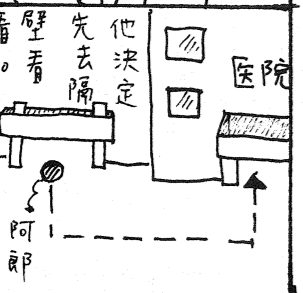 他決定
先去隔
壁看
看。
医院
阿郎